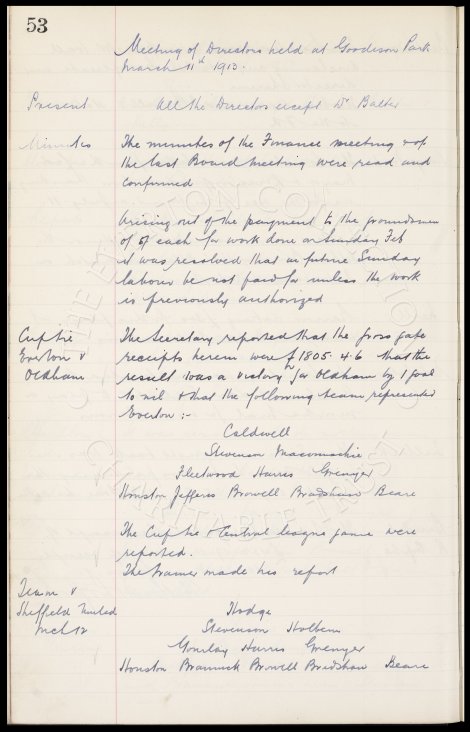 53
Meeting of Directors held at Goodison Park
March 11th 1913.
Present
All the Directors except Dr Baxter
Minutes
The minutes of the Finance meeting & of
the last Board meeting were read and
confirmed
Arising out of the payment to the groundsmen
of 5/- each for work done on Sunday Feb
it was resolved that in future Sunday
labour be not paid for unless the work
is previously authorized
Cup tie
Everton v
Oldham
The Secretary reported that the gross gate
receipts herein were £1805.4.6 that the
result was a victory for Oldham by 1 goal
to nil & that the following team represented
Everton :-
Caldwell
Stevenson Macconachie
Fleetwood Harris Grenyer
Houston Jefferis Browell Bradshaw Beare
The Cup tie & Central league game were
reported.
The trainer made his report
Team v
Sheffield United
Mch 12
Hodge
Stevenson Holbem
Gourlay Harris Grenyer
Houston Brannick Browell Bradshaw Beare
THE EVERTON COLLECTION
CHARITABLE TRUST